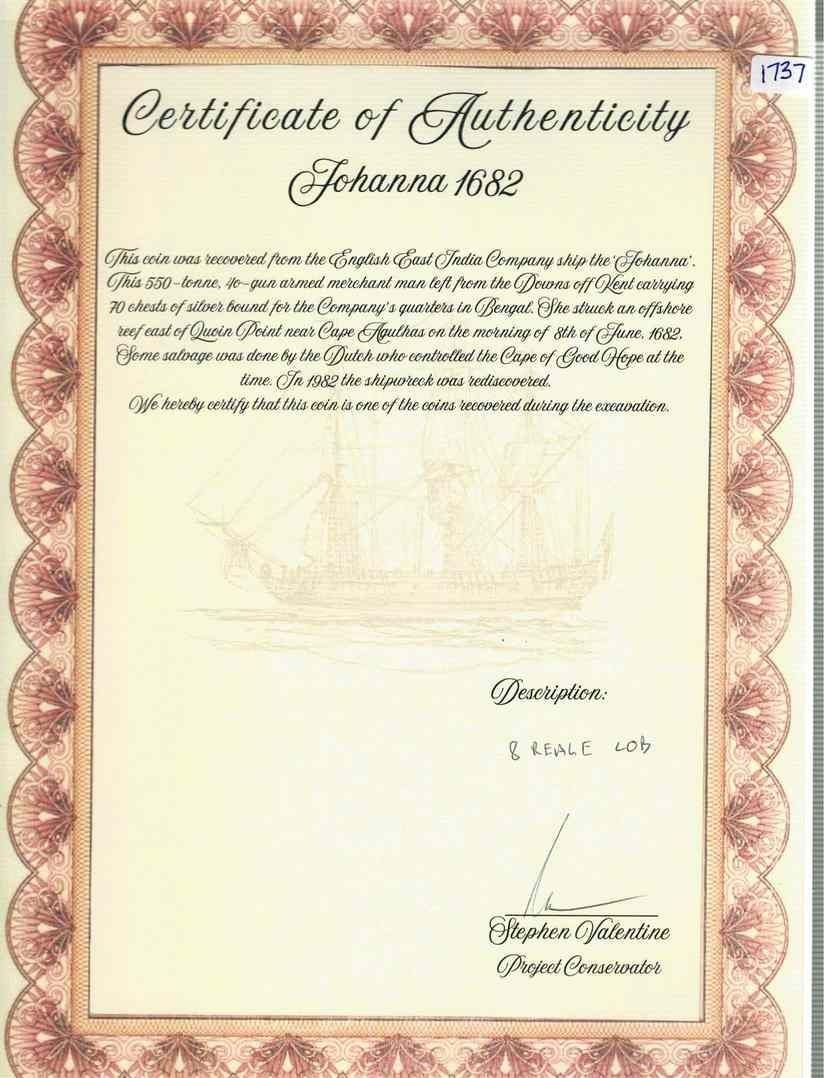 1737
Certificate of Authenticity
Johanna 1682
This coin was recovered from the English East India Company ship the 'Johanna'.
This 550-tonne, 40-gun armed merchant man left from the Downs off Kent carrying
70 chests of silver bound for the Company's quarters in Bengal. She struck an offshore
reef east of Quoin Point near Cape Agulhas on the morning of 8th of June, 1682.
Some salvage was done by the Dutch who controlled the Cape of Good Hope at the
time. In 1982 the shipwreck was rediscovered.
We hereby certify that this coin is one of the coins recovered during the excavation.
Description:
8 REALE COB
Stephen Valentine
Project Conservator